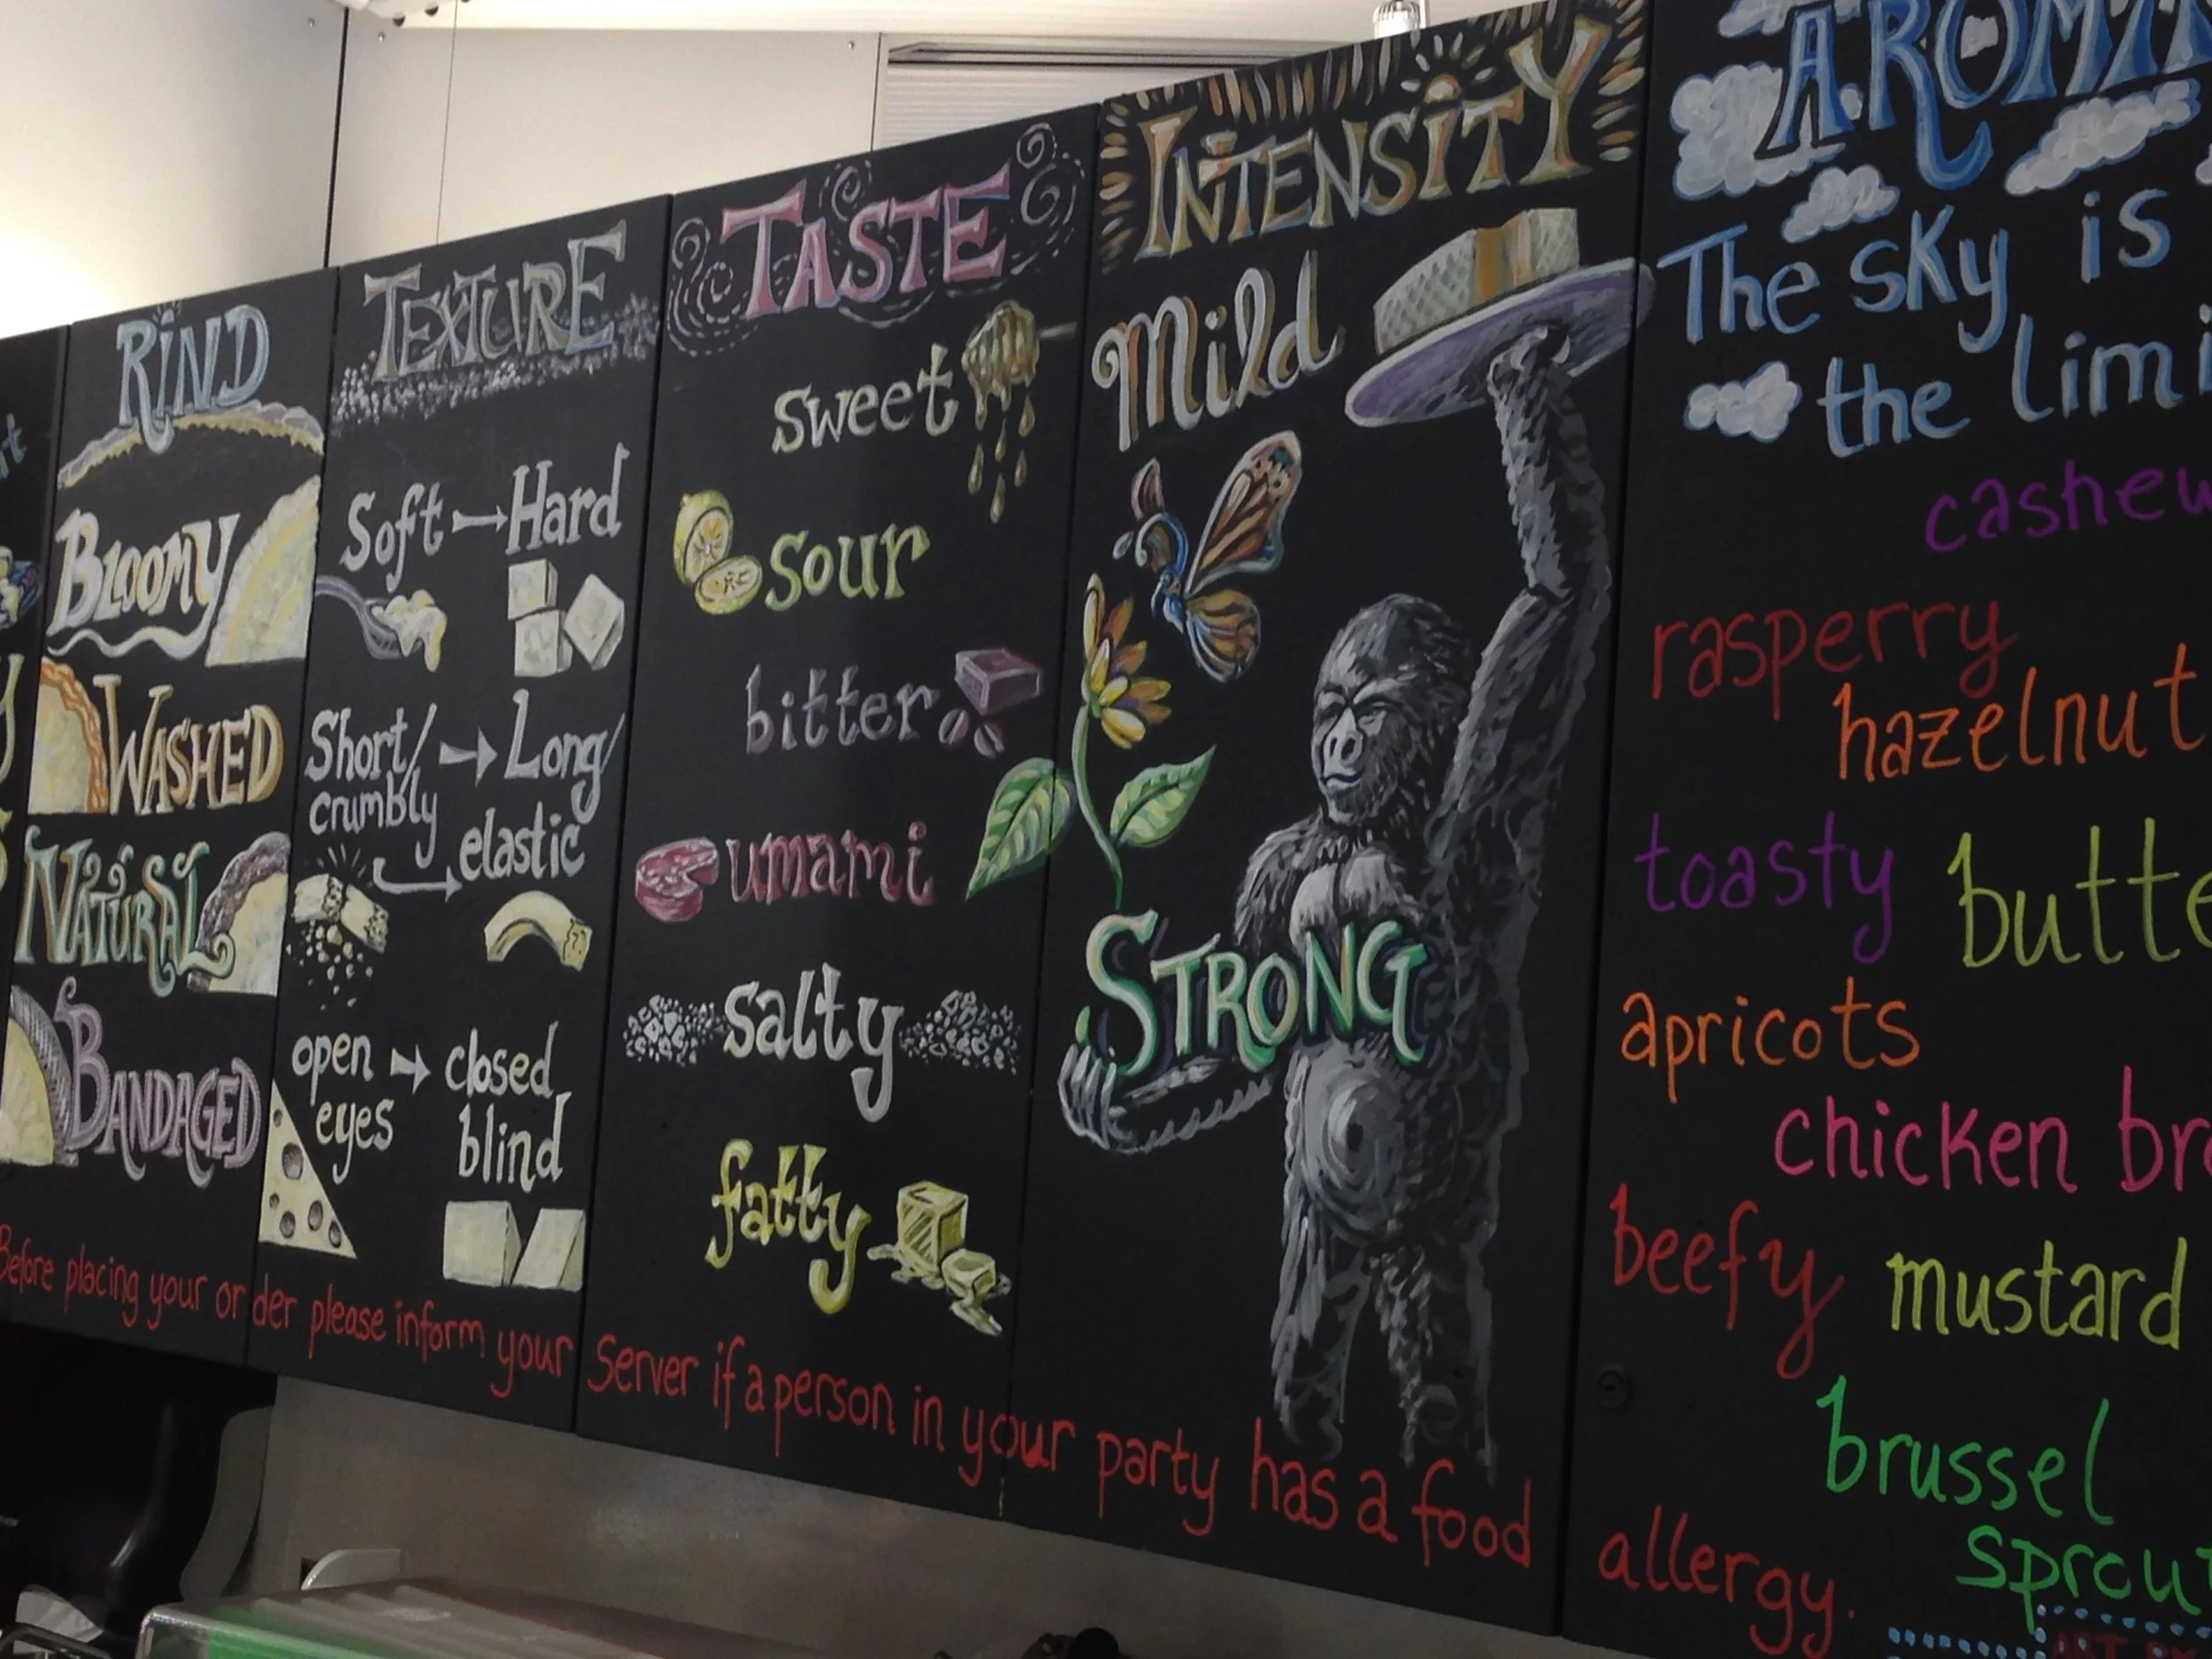 RIND
BLOOMY
WASHED
NATURAL
BANDAGED
TEXTURE
Soft → Hard
Short/ → Long/
crumbly elastic
open → closed
eyes blind
TASTE
sweet
sour
bitter
umami
salty
fatty
INTENSITY
Mild
STRONG
The sky is
the
raspperry
hazelnut
toasty
apricots
chicken
beefy mustard
brussel
Before placing your or der please inform your Server if a person in your party has a food allergy.